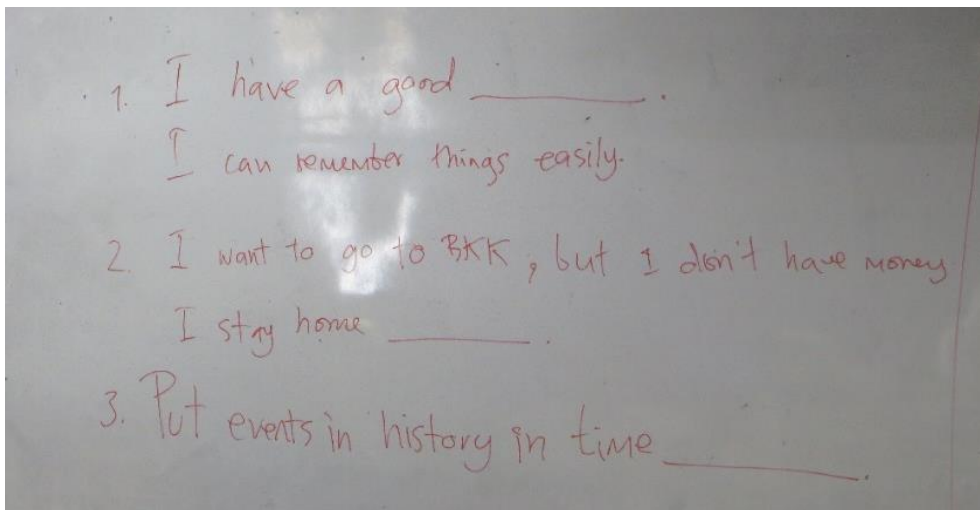 1. I have a good ________.
I can remember things easily.
2. I want to go to BKK, but I don't have money
I stay home ________.
3. Put events in history in time ________.